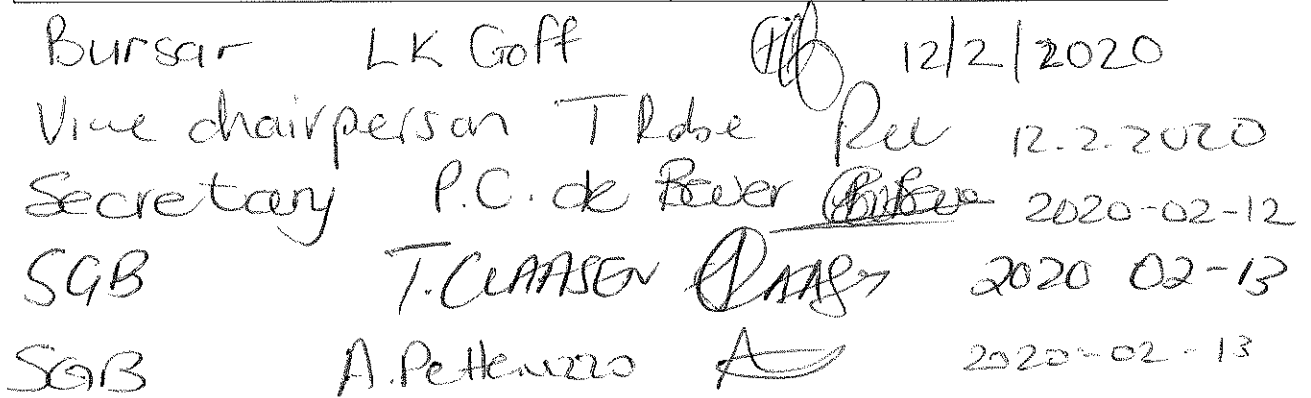 Bursar LK Goff 12/2/2020
Vice chairperson T Robe 12.2.2020
Secretary P.C. de Bever 2020-02-12
SGB T. CLAASEN 2020 02-13
SGB A. Pettenuzzo 2020-02-13